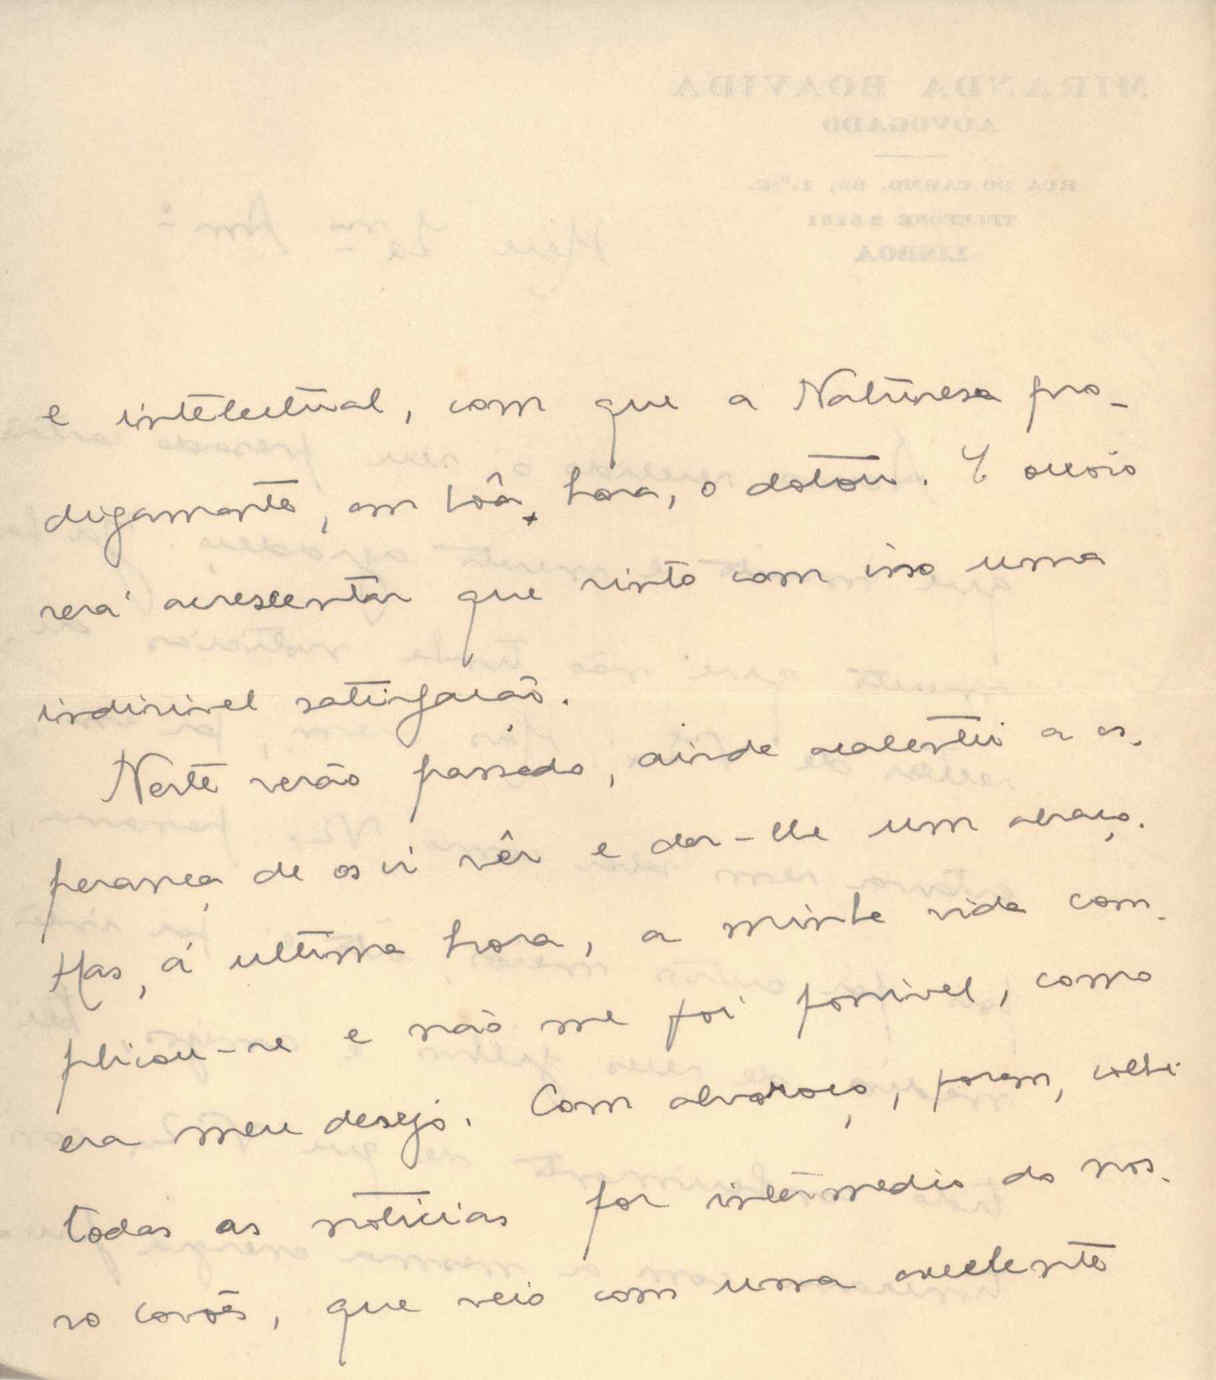 MIRANDA BOAVIDA
ADVOGADO
LINBOA
Meu
e intelectual, com que a Naturesa pro-
digamente, em bôa hora, o dotou. E ocioso
será acrescentar que sinto com isso uma
indizivel satisfação.
Neste verão passado, ainda acalentei a es-
perança de os ir vêr e dar-lhe um abraço.
Mas, á ultima hora, a minha vida com-
plicou-se e não me foi possivel, como
era meu desejo. Com alvoroço, porem, colhi
todas as noticias por intermedio do nos-
so que veio com uma excelente